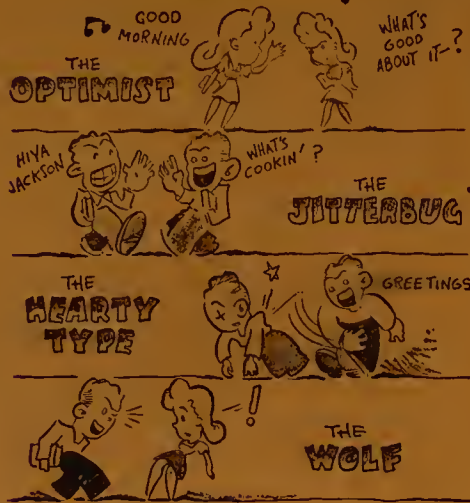 GOOD
MORNING
WHAT'S
GOOD
ABOUT IT-?
THE
OPTIMIST
HIYA
JACKSON
WHAT'S
COOKIN'?
THE
JITTERBUG
THE
HEARTY
TYPE
GREETINGS
!
THE
WOLF